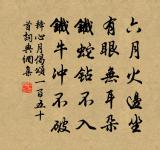 六月火邊坐
有眼無耳朵
鐵蛇鑽不入
鐵牛沖不破
釋心月偈頌一百五十
首詞典網集